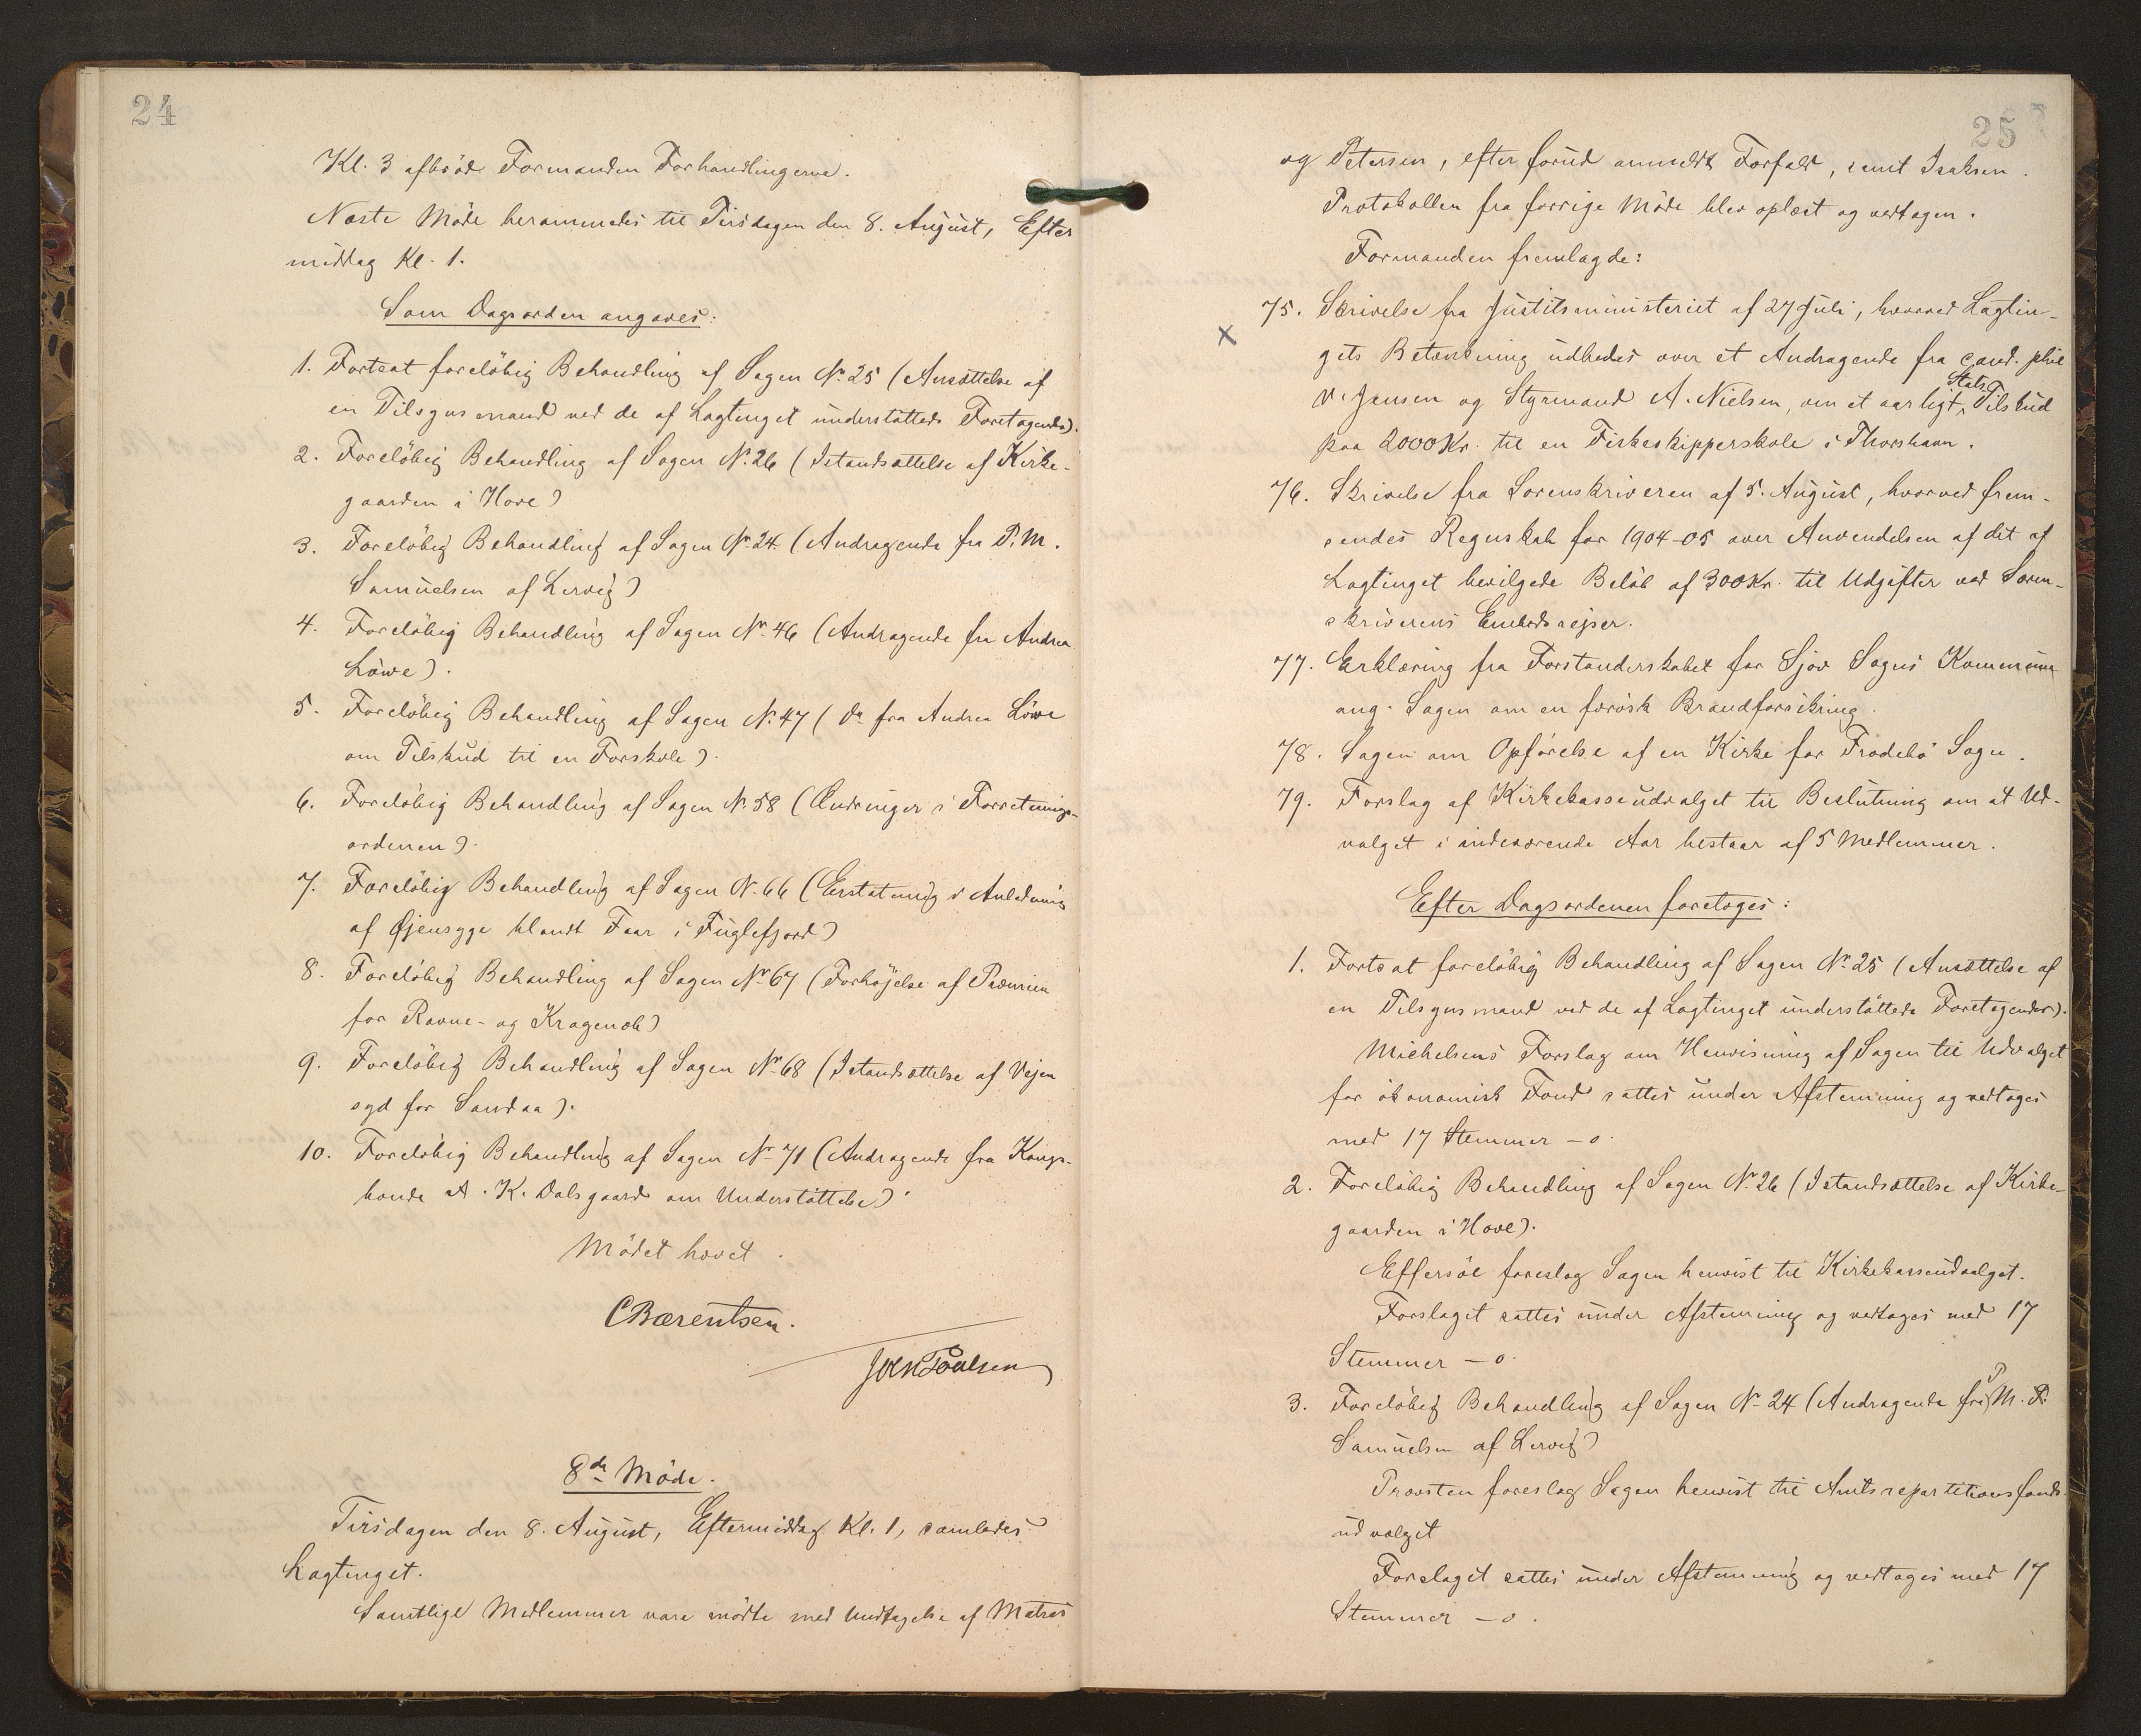 24
Kl. 3 afbröd Formanden Forhandlingerne.
Næste Möde berammedes til Tirsdagen den 8. August, Efter
middag Kl. 1.
Som Dagsorden angaves:
1. Fortsat foreløbig Behandling af Sagen Nr. 25 (Ansættelse af
en Tilsynsmand ved de af Lagtinget understøttede Foretagender).
2. Foreløbig Behandling af Sagen Nr. 26 (Istandsættelse af Kirke-
gaarden i Hove)
3. Foreløbig Behandling af Sagen Nr. 24 (Andragende fra P. M.
Samuelsen af Lervig)
4. Foreløbig Behandling af Sagen Nr. 46 (Andragende fra Andrea
Löwe).
5. Foreløbig Behandling af Sagen Nr. 47 (do fra Andrea Löwe
om Tilskud til en Forskole).
6. Foreløbig Behandling af Sagen Nr. 58 (Ændringer i Forretnings-
ordenen).
7. Foreløbig Behandling af Sagen Nr. 66 (Erstatning i Anledning
af Øjensyge blandt Faar i Fuglefjord)
8. Foreløbig Behandling af Sagen Nr. 67 (Forhøjelse af Præmien
for Ravne- og Kragenæb)
9. Foreløbig Behandling af Sagen Nr. 68 (Istandsættelse af Vejen
syd for Sandaa).
10. Foreløbig Behandling af Sagen Nr. 71 (Andragende fra Kongs-
bonde A. K. Dalsgaard om Understøttelse).
Mödet hævet.
C Bærentsen.
Poulsen
8de Möde.
Tirsdagen den 8. August, Eftermiddag Kl. 1, samledes
Lagtinget.
Samtlige Medlemmer vare mödte med Undtagelse af Matras
25
og Petersen, efter forud anmeldt Forfald, samt Isaksen.
Protokollen fra forrige Möde blev oplæst og vedtagen.
Formanden fremlagde:
75. Skrivelse fra Justitsministeriet af 27 Juli, hvorved Lagtin-
x
gets Betænkning udbedes over et Andragende fra cand. phil
V. Jensen og Styrmand A. Nielsen, om et aarligt Stats Tilskud
paa 2000 Kr. til en Fiskeskipperskole i Thorshavn.
76. Skrivelse fra Sorenskriveren af 5. August, hvorved frem-
sendes Regnskab for 1904-05 over Anvendelsen af det af
Lagtinget bevilgede Beløb af 300 Kr. til Udgifter ved Soren-
skriverens Embedsrejser.
77. Erklæring fra Forstanderskabet for Sjov Sogns Kommune
ang. Sagen om en færøsk Brandforsikring.
78. Sagen om Opførelse af en Kirke for Frodebø Sogn.
79. Forslag af Kirkekasseudvalget til Beslutning om at Ud-
valget i indeværende Aar bestaar af 5 Medlemmer.
Efter Dagsordenen foretoges:
1. Fortsat foreløbig Behandling af Sagen Nr. 25 (Ansættelse af
en Tilsynsmand ved de af Lagtinget understøttede Foretagender).
Michelsens Forslag om Henvisning af Sagen til Udvalget
for økonomisk Fond sattes under Afstemning og vedtoges
med 17 Stemmer – 0.
2. Foreløbig Behandling af Sagen Nr. 26 (Istandsættelse af Kirke-
gaarden i Hove).
Effersöe foreslog Sagen henvist til Kirkekasseudvalget.
Forslaget sattes under Afstemning og vedtoges med 17
Stemmer – 0.
3. Foreløbig Behandling af Sagen Nr. 24 (Andragende fra P M.
Samuelsen af Lervig)
Provsten foreslog Sagen henvist til Amtsrepartitionsfonds-
udvalget
Forslaget sattes under Afstemning og vedtoges med 17
Stemmer – 0.